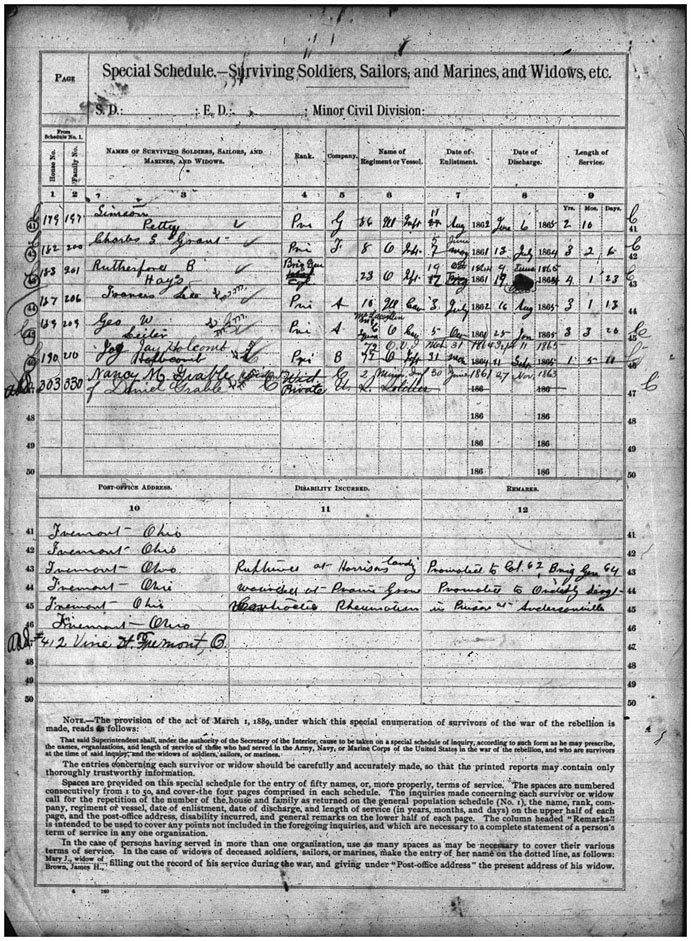 PAGE
Special Schedule.—Surviving Soldiers, Sailors, and Marines, and Widows, etc.
S. D.: ; E. D.: ; Minor Civil Division:
From Schedule No. 1.
House No. Family No. NAMES OF SURVIVING SOLDIERS, SAILORS, AND MARINES, AND WIDOWS. Rank. Company. Name of Regiment or Vessel. Date of Enlistment. Date of Discharge. Length of Service.
1 2 3 4 5 6 7 8 9
Yrs. Mos. Days.
Simeon
41 179 197 Petty Pri G 86 Ill Inft 11 Aug 1862 June 6 1865 2 10 41
42 182 200 Charles E Grant Pri F 8 O Inft 1861 13 July 1864 3 2 42
Rutherford B Brig Gen
43 183 201 Hays 23 O Inft 4 1 23 43
44 187 206 Francis Pri A 10 Ill Cav 3 July 1862 16 Aug 1865 3 1 13 44
Geo W
45 189 209 Pri A 6 O Cav 5 1861 25 Jan 1865 3 3 20 45
Jay Holcomb
46 190 210 Holcomb Pri B O Inft 31 46
303 330 Nancy M. Grable Wid. C 2 30 June 1861 27 Nov 1863
47 of Daniel Grable Private U. S. Soldier 186 47
48 186 186 48
49 186 186 49
50 186 186 50
POST-OFFICE ADDRESS. DISABILITY INCURRED. REMARKS.
10 11 12
41 Fremont Ohio 41
42 Fremont Ohio 42
43 Fremont Ohio Ruptured at Harrisons Promoted to Col. 62, Brig Gen 64 43
44 Fremont Ohio wounded at Prairie Grove Promoted to Orderly 44
45 Fremont Ohio Rheumatism in Prison at Andersonville 45
46 Fremont Ohio 46
47 412 Vine St. Fremont, O. 47
48 48
49 49
50 50
NOTE.—The provision of the act of March 1, 1889, under which this special enumeration of survivors of the war of the rebellion is
made, reads as follows:
That said Superintendent shall, under the authority of the Secretary of the Interior, cause to be taken on a special schedule of inquiry, according to such form as he may prescribe,
the names, organizations, and length of service of those who had served in the Army, Navy, or Marine Corps of the United States in the war of the rebellion, and who are survivors
at the time of said inquiry, and the widows of soldiers, sailors, or marines.
The entries concerning each survivor or widow should be carefully and accurately made, so that the printed reports may contain only
thoroughly trustworthy information.
Spaces are provided on this special schedule for the entry of fifty names, or, more properly, terms of service. The spaces are numbered
consecutively from 1 to 50, and cover the four pages comprised in each schedule. The inquiries made concerning each survivor or widow
call for the repetition of the number of the house and family as returned on the general population schedule (No. 1), the name, rank, com-
pany, regiment or vessel, date of enlistment, date of discharge, and length of service (in years, months, and days) on the upper half of each
page, and the post-office address, disability incurred, and general remarks on the lower half of each page. The column headed "Remarks"
is intended to be used to cover any points not included in the foregoing inquiries, and which are necessary to a complete statement of a person's
term of service in any one organization.
In the case of persons having served in more than one organization, use as many spaces as may be necessary to cover their various
terms of service. In the case of widows of deceased soldiers, sailors, or marines, make the entry of her name on the dotted line, as follows:
Mary J., widow of
Brown, James H., filling out the record of his service during the war, and giving under "Post-office address" the present address of his widow.